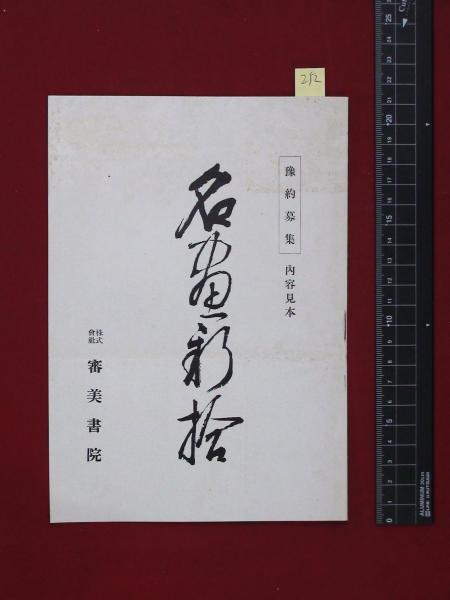 252
豫約募集 內容見本
名畫新拾
株式會社 審美書院
0
5
10
15
20
25
ALUMINUM 30cm